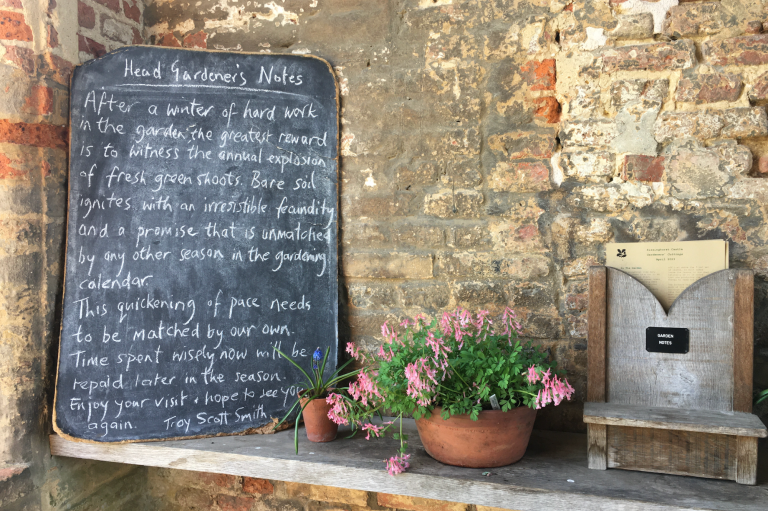 Head Gardener's Notes
After a winter of hard work
in the garden, the greatest reward
is to witness the annual explosion
of fresh green shoots. Bare soil
ignites with an irresistible feoundity
and a promise that is unmatched
by any other season in the gardening
calendar.
This quickening of pace needs
to be matched by our own.
Time spent wisely now will be
repaid later in the season.
Enjoy your visit & hope to see you
again. Troy Scott Smith
GARDEN
NOTES